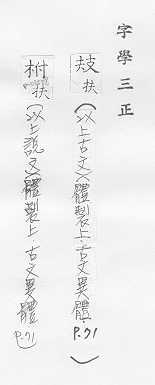 字學三正
扶(以上古文)體製上·古文異體 P.71)
柎扶(以上說文)體製上·古文異體 P.71)